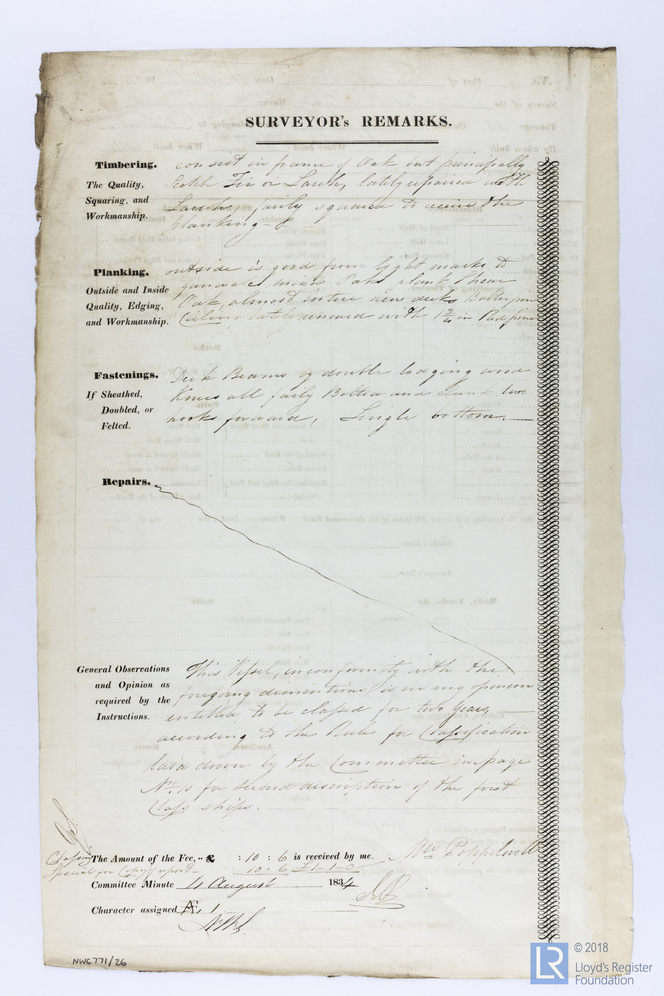 SURVEYOR's REMARKS.
Timbering.
The Quality,
Squaring, and
Workmanship.
consist in frame of Oak but principally
Scotch Fir or Larch, lately repaired with
Larch, fairly squared to receive the
planking
Planking.
Outside and Inside
Quality, Edging,
and Workmanship.
outside is good from light marks to
Oak plank Shear
Oak almost entire new decks
Ceiling lately renewed with in Red pine
Fastenings.
If Sheathed,
Doubled, or
Felted.
Deck Beams by double lodging and
Knees all fairly Bolted and two
hook forward, Single bottom.
Repairs.
General Observations
and Opinion as
required by the
Instructions.
This Vessel, in conformity with the
foregoing dimentions is in my opinion
entitled to be classed for two years,
according to the Rules for Classification
laid down by the Committee in page
No. 10 for second discription of the first
Class ships.
Wm Poppelwell
The Amount of the Fee, £ : 10 : 6 is received by me.
Special for Copy report 10 : 6 £1 1 0
Committee Minute 4 August 1834
Character assigned Æ 1
NWC 771/26
© 2018
LR
Lloyd's Register
Foundation